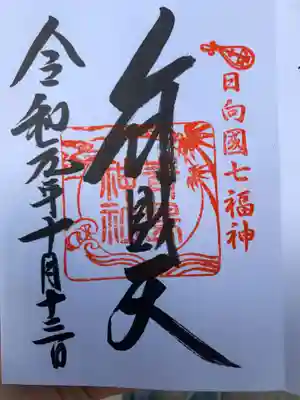 日向國七福神
弁財天
令和元年十月十三日